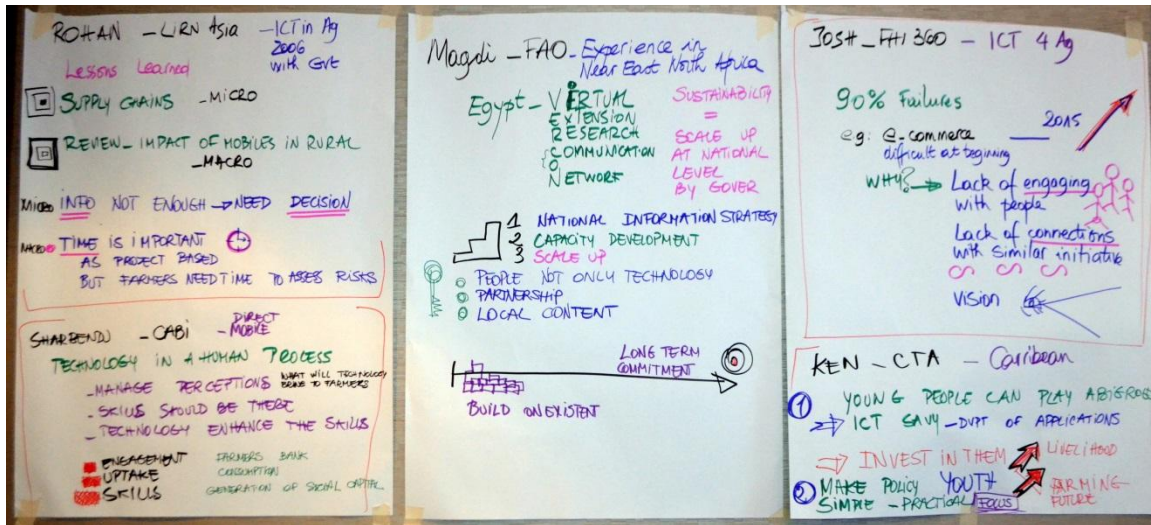 ROHAN - LiRN Asia - ICT in Ag
2006
with Gvt
Lessons Learned
SUPPLY CHAINS - MICRO
REVIEW - IMPACT OF MOBILES IN RURAL
- MACRO
MICRO INFO NOT ENOUGH → NEED DECISION
MACRO TIME IS IMPORTANT
AS PROJECT BASED
BUT FARMERS NEED TIME TO ASSES RISKS
SHARBENDU - CABI - DIRECT
MOBILE
TECHNOLOGY IN A HUMAN PROCESS
- MANAGE PERCEPTIONS WHAT WILL TECHNOLOGY
BRING TO FARMERS
- SKILLS SHOULD BE THERE
- TECHNOLOGY ENHANCE THE SKILLS
ENGAGEMENT FARMERS BANK
UPTAKE CONSUMPTION
SKILLS GENERATION OF SOCIAL CAPITAL
Magdi - FAO - Experience in
Near East North Africa
Egypt - VIRTUAL
EXTENSION
RESEARCH
COMMUNICATION
NETWORK
SUSTAINABILITY
=
SCALE UP
AT NATIONAL
LEVEL
BY GOVER
1 NATIONAL INFORMATION STRATEGY
2 CAPACITY DEVELOPMENT
3 SCALE UP
PEOPLE NOT ONLY TECHNOLOGY
PARTNERSHIP
LOCAL CONTENT
LONG TERM
COMMITMENT
BUILD ON EXISTENT
JOSH - FHI 360 - ICT 4 Ag
90% Failures
eg: e-commerce 2015
difficult at beginning
WHY? → Lack of engaging
with people
Lack of connections
with similar initiative
VISION
KEN - CTA - Carribean
1 YOUNG PEOPLE CAN PLAY A BIG ROLE
⇒ ICT SAVY - DVPT OF APPLICATIONS
⇒ INVEST IN THEM LIVELIHOOD
2 MAKE POLICY YOUTH FARMING
SIMPLE - PRACTICAL FOCUS FUTURE